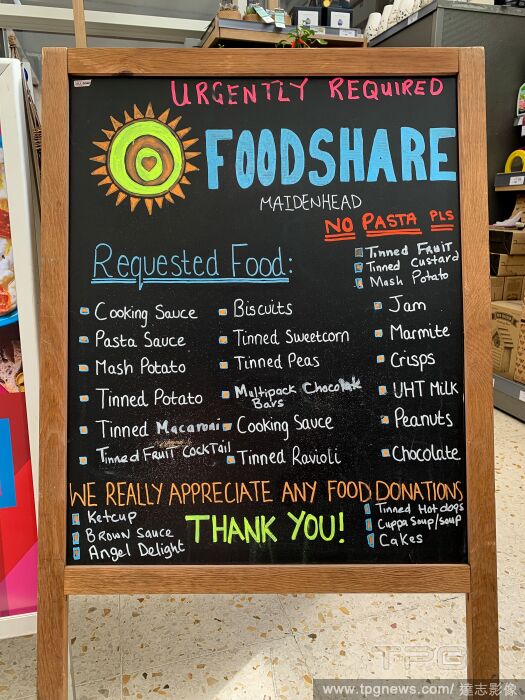 URGENTLY REQUIRED
FOODSHARE
MAIDENHEAD
NO PASTA PLS
Requested Food:
Tinned Fruit
Tinned Custard
Mash Potato
Cooking Sauce
Pasta Sauce
Mash Potato
Tinned Potato
Tinned Macaroni
Tinned Fruit Cocktail
Biscuits
Tinned Sweetcorn
Tinned Peas
Multipack Chocolate
Bars
Cooking Sauce
Tinned Ravioli
Jam
Marmite
Crisps
UHT Milk
Peanuts
Chocolate
WE REALLY APPRECIATE ANY FOOD DONATIONS
Ketcup
Brown Sauce
Angel Delight
THANK YOU!
Tinned Hot dogs
Cuppa Soup/soup
Cakes
TPG
www.tpgnews.com/ 達志影像